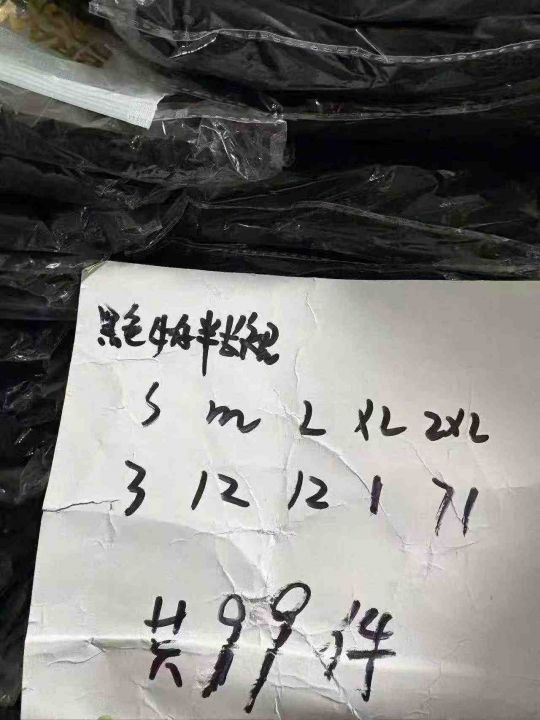 黑色 半长裙
S m L XL 2XL
3 12 12 1 71
共99件